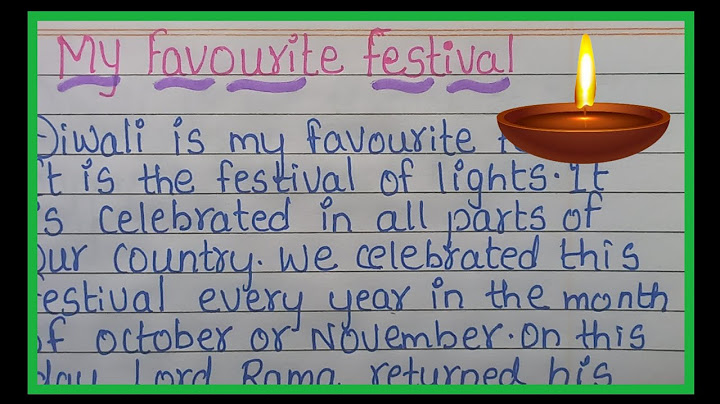 My favourite festival
Diwali is my favourite
It is the festival of lights. It
is celebrated in all parts of
our country. We celebrated this
festival every year in the month
of october or November. On this
day Lord Rama returned his